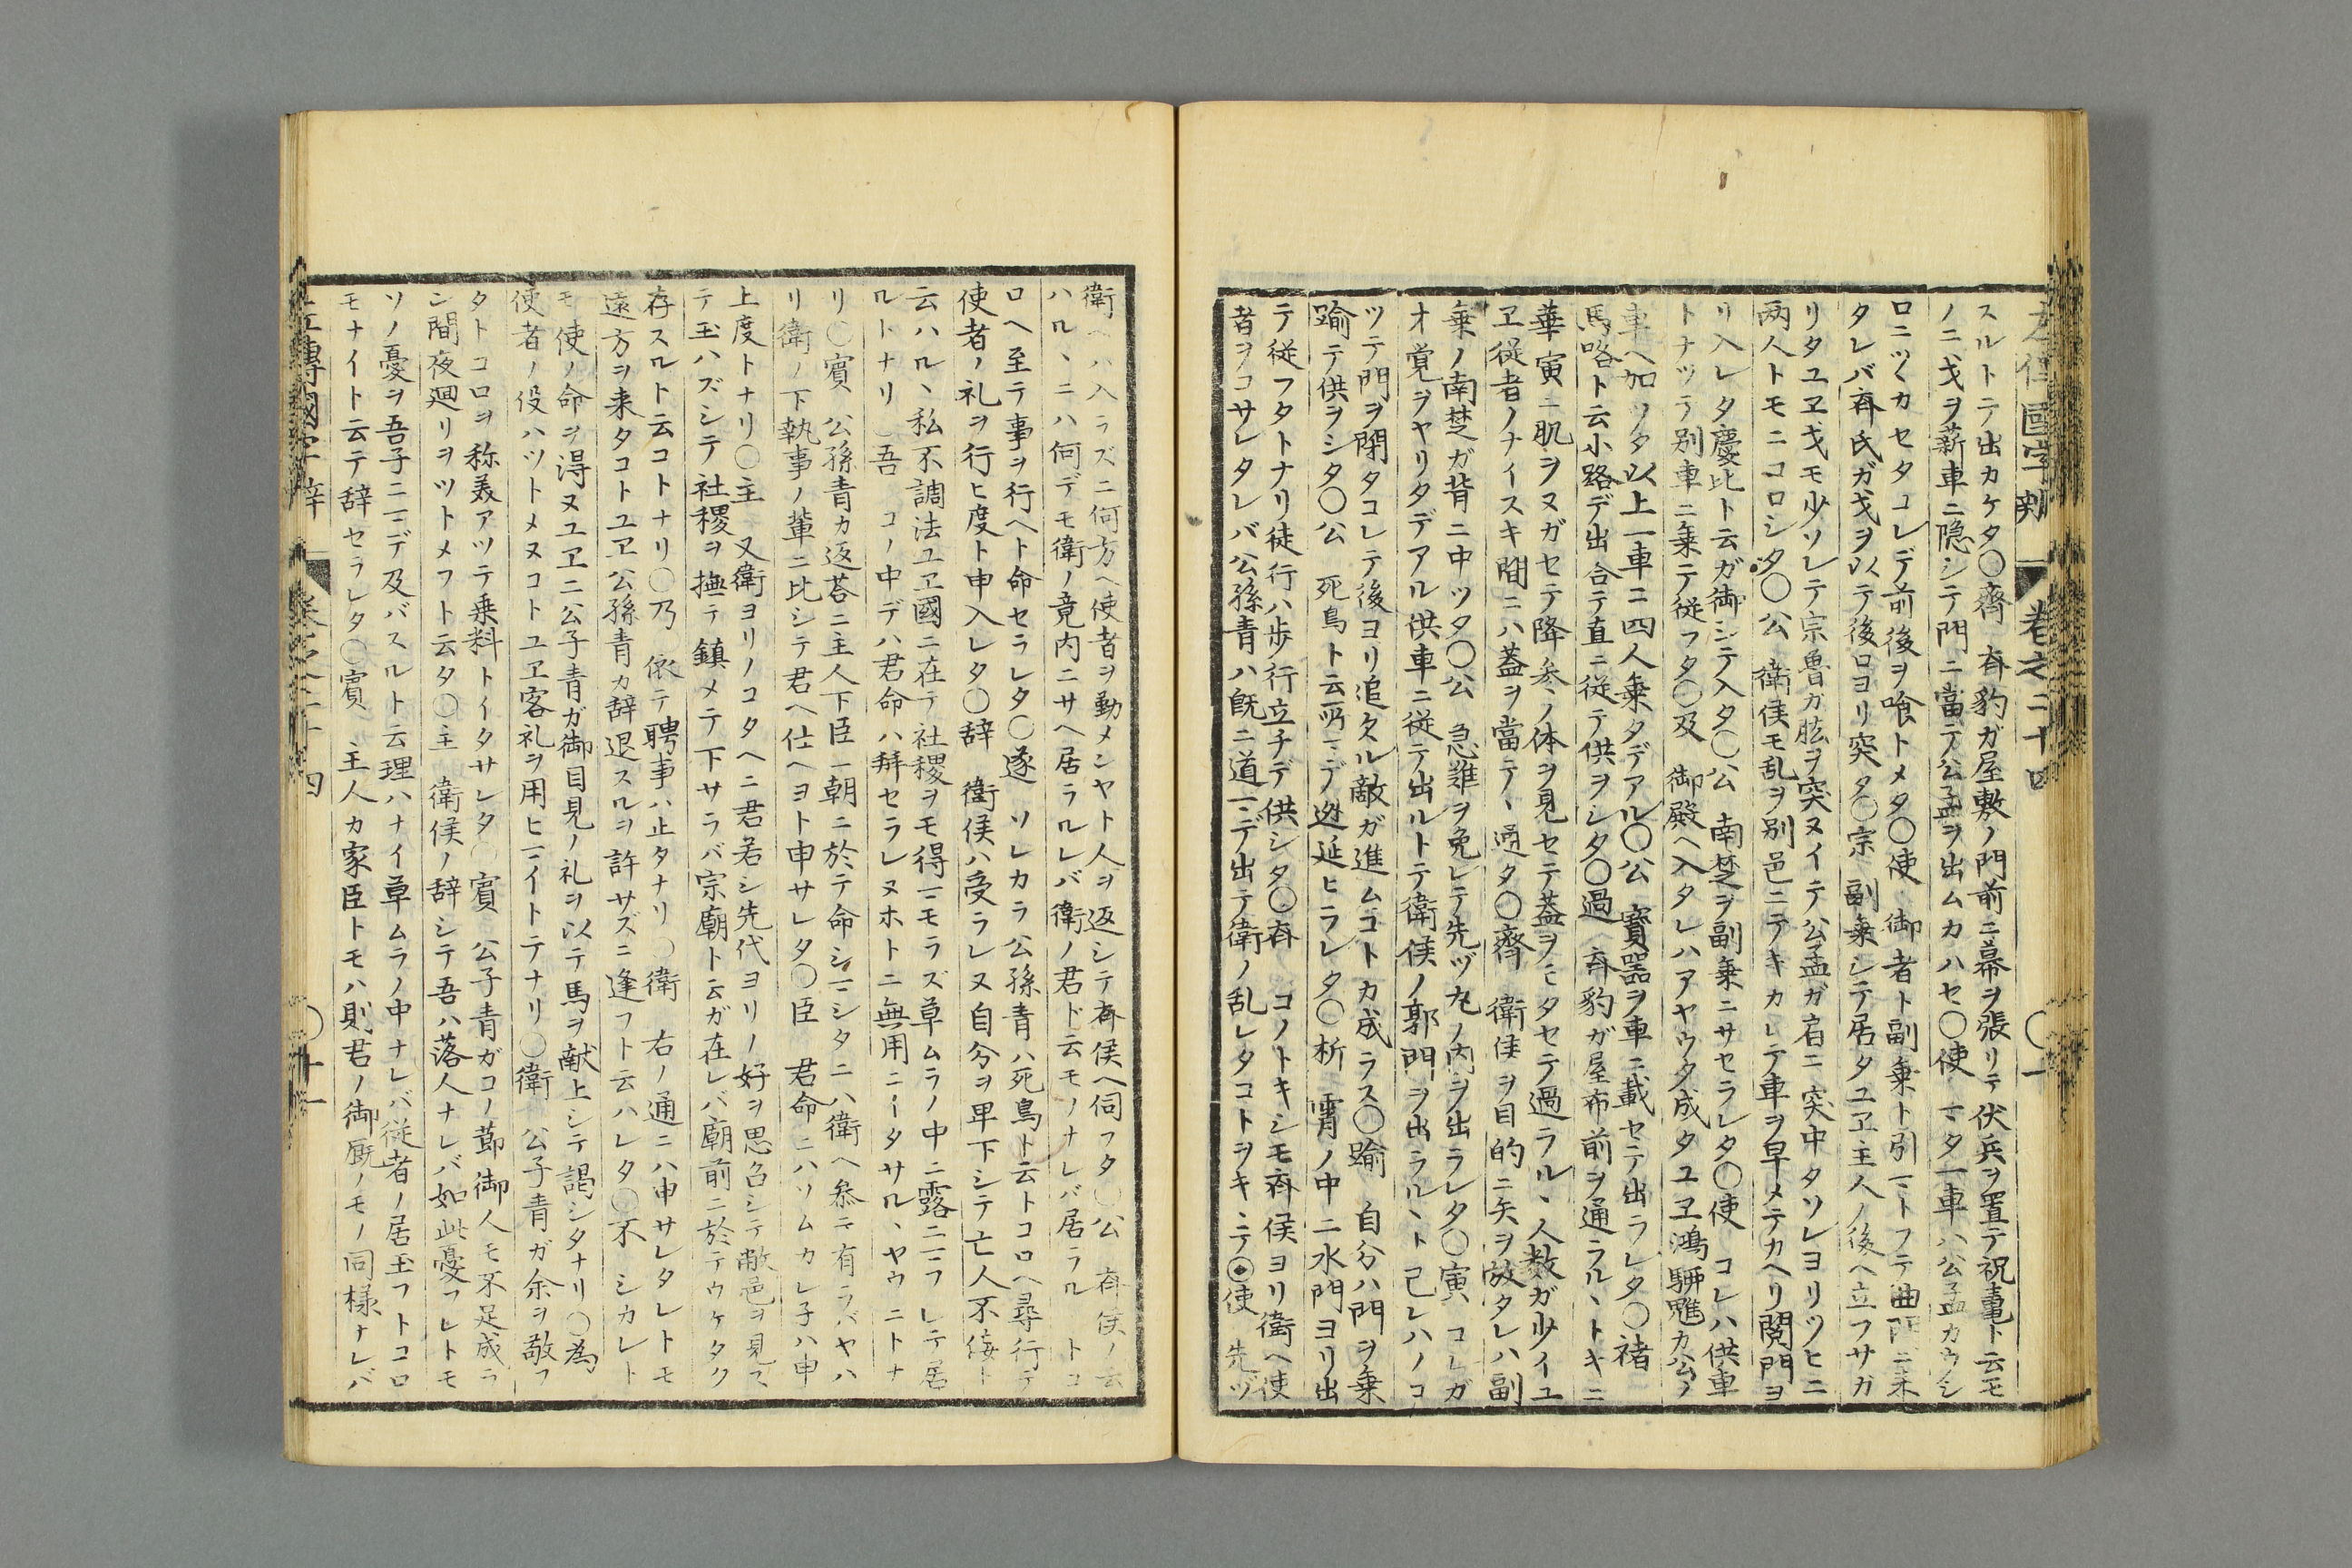 スルトテ出カケタ〇齊 斉豹ガ屋敷ノ門前ニ幕ヲ張リテ伏兵ヲ置テ祝鼃ト云モ
ノニ戈ヲ薪車ニ隠シテ門ニ當テ公孟ヲ出ムカハセ〇使 一ミタ一車ハ公孟カウシ
ロニツヾカセタコレデ前後ヲ喰トメタ〇使 御者ト副乗ト引一ミトフテ曲門ニ
タレバ斉氏ガ戈ヲ以テ後ロヨリ突タ〇宗 副乗シテ居タユヱ主人ノ後ヘ立フサガ
リタユヱ戈モ少ソレテ宗魯ガ肱ヲ突ヌイテ公孟ガ肩ニ突中タソレヨリツヒニ
両人トモニコロシタ〇公 衛侯モ乱ヲ別邑ニテキカレテ車ヲ早メテカヘリ閲門ヨ
リ入レタ慶比ト云ガ御シテ入タ〇公 南楚ヲ副乗ニサセラレタ〇使 コレハ供車
トナツテ別車ニ乗テ従フタ〇及 御殿ヘ入タレハアヤウタ成タユヱ鴻駵魋カ公ノ
車ヘ加ワタ以上一車ニ四人乗タデアル〇公 寳器ヲ車ニ載セテ出ラレタ〇褚
馬路ト云小路デ出合テ直ニ従テ供ヲシタ〇過 斉豹ガ屋布前ヲ通ラルヽトキニ
華寅ニ肌ヲヌガセテ降参ノ体ヲ見セテ蓋ヲモタセテ過ラルヽ人数ガ少イユ
ヱ従者ノナイスキ間ニハ蓋ヲ當テヽ通タ〇齊 衛侯ヲ目的ニ矢ヲ放タレハ副
乗ノ南楚ガ背ニ中ツタ〇公 急難ヲ免レテ先ヅ丸ノ内ヲ出ラレタ〇寅 コレガ
オ覚ヲヤリタデアル供車ニ従テ出ルトテ衛侯ノ郭門ヲ出ラルヽト己レハノコ
ツテ門ヲ閉タコレテ後ヨリ追タル敵ガ進ムコトカ成ラス〇踰 自分ハ門ヲ乗
踰テ供ヲシタ〇公 死鳥ト云所一ミデ迯延ヒラレタ〇析 霄ノ中ニ水門ヨリ出
テ従フタトナリ徒行ハ歩行立チデ供シタ〇斉 コノトキシモ斉侯ヨリ衛ヘ使
者ヲコサレタレバ公孫青ハ既ニ道一ミデ出テ衛ノ乱レタコトヲキヽテ◉使 先ヅ
國字 卷之二十四 〇十一
衛ヘハ入ラズニ何方ヘ使者ヲ勤メンヤト人ヲ返シテ斉侯ヘ伺フタ〇公 斉侯ノ云
ハルヽニハ何デモ衛ノ竟内ニサヘ居ラルレバ衛ノ君ド云モノナレバ居ラル トコ
ロヘ至テ事ヲ行ヘト命セラレタ〇遂 ソレカラ公孫青ハ死鳥ト云トコロヘ尋行テ
使者ノ礼ヲ行ヒ度ト申入レタ〇辞 衛侯ハ受ラレヌ自分ヲ卑下シテ亡人不佞ト
云ハルヽ私不調法ユヱ國ニ在テ社稷ヲモ得一ミモラズ草ムラノ中ニ露ニ一ミフレテ居
ルトナリ 吾 コノ中デハ君命ハ辱セラレヌホトニ無用ニイタサルヽヤウニトナ
リ〇賓 公孫青カ返荅ニ主人下臣一朝ニ於テ命シ一ミシタニハ衛ヘ参テ有ラバヤハ
リ衛ノ下執事ノ輩ニ比シテ君ヘ仕ヘヨト申サレタ〇臣 君命ニハソムカレ子ハ申
上度トナリ〇主 又衛ヨリノコタヘニ君若シ先代ヨリノ好ヲ思召シテ敝邑ヲ見マ
テ玉ハズシテ社稷ヲ撫テ鎮メテ下サラバ宗廟ト云ガ在レバ廟前ニ於テウケタク
存スルト云コトナリ〇乃 依テ聘事ハ止タナリ〇衛 右ノ通ニハ申サレタレトモ
遠方ヲ来タコトユヱ公孫青カ辞退スルヲ許サズニ逢フト云ハレタ〇不 シカレト
モ使ノ命ヲ得ヌユヱニ公子青ガ御目見ノ礼ヲ以テ馬ヲ献上シテ謁シタナリ〇為
使者ノ役ハツトメヌコトユヱ客礼ヲ用ヒ一ミイトテナリ〇衛 公子青ガ余ヲ敬フ
タトコロヲ称美アツテ乗料トイタサレタ〇賓 公子青ガコノ節御人モ不足成ラ
ン間夜廻リヲツトメフト云タ〇主 衛侯ノ辞シテ吾ハ落人ナレバ如此憂フレトモ
ソノ憂ヲ吾子ニ一ミデ及バスルト云理ハナイ草ムラノ中ナレバ従者ノ居玉フトコロ
モナイト云テ辞セラレタ〇賓 主人カ家臣トモハ則君ノ御厩ノモノ同様ナレバ
左傳國字辯 卷之二十四 〇十一